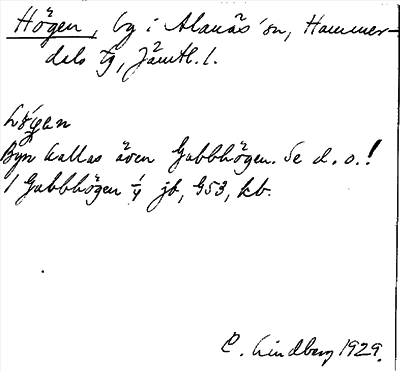 Högen, by i Alanäs sn, Hammer-
dals tg, Jämtl. l.
högen
Byn kallas även Gubbhögen. Se d. o.!
1 Gubbhögen 1/4 jb, 953, kb.
C. Lindberg 1929.